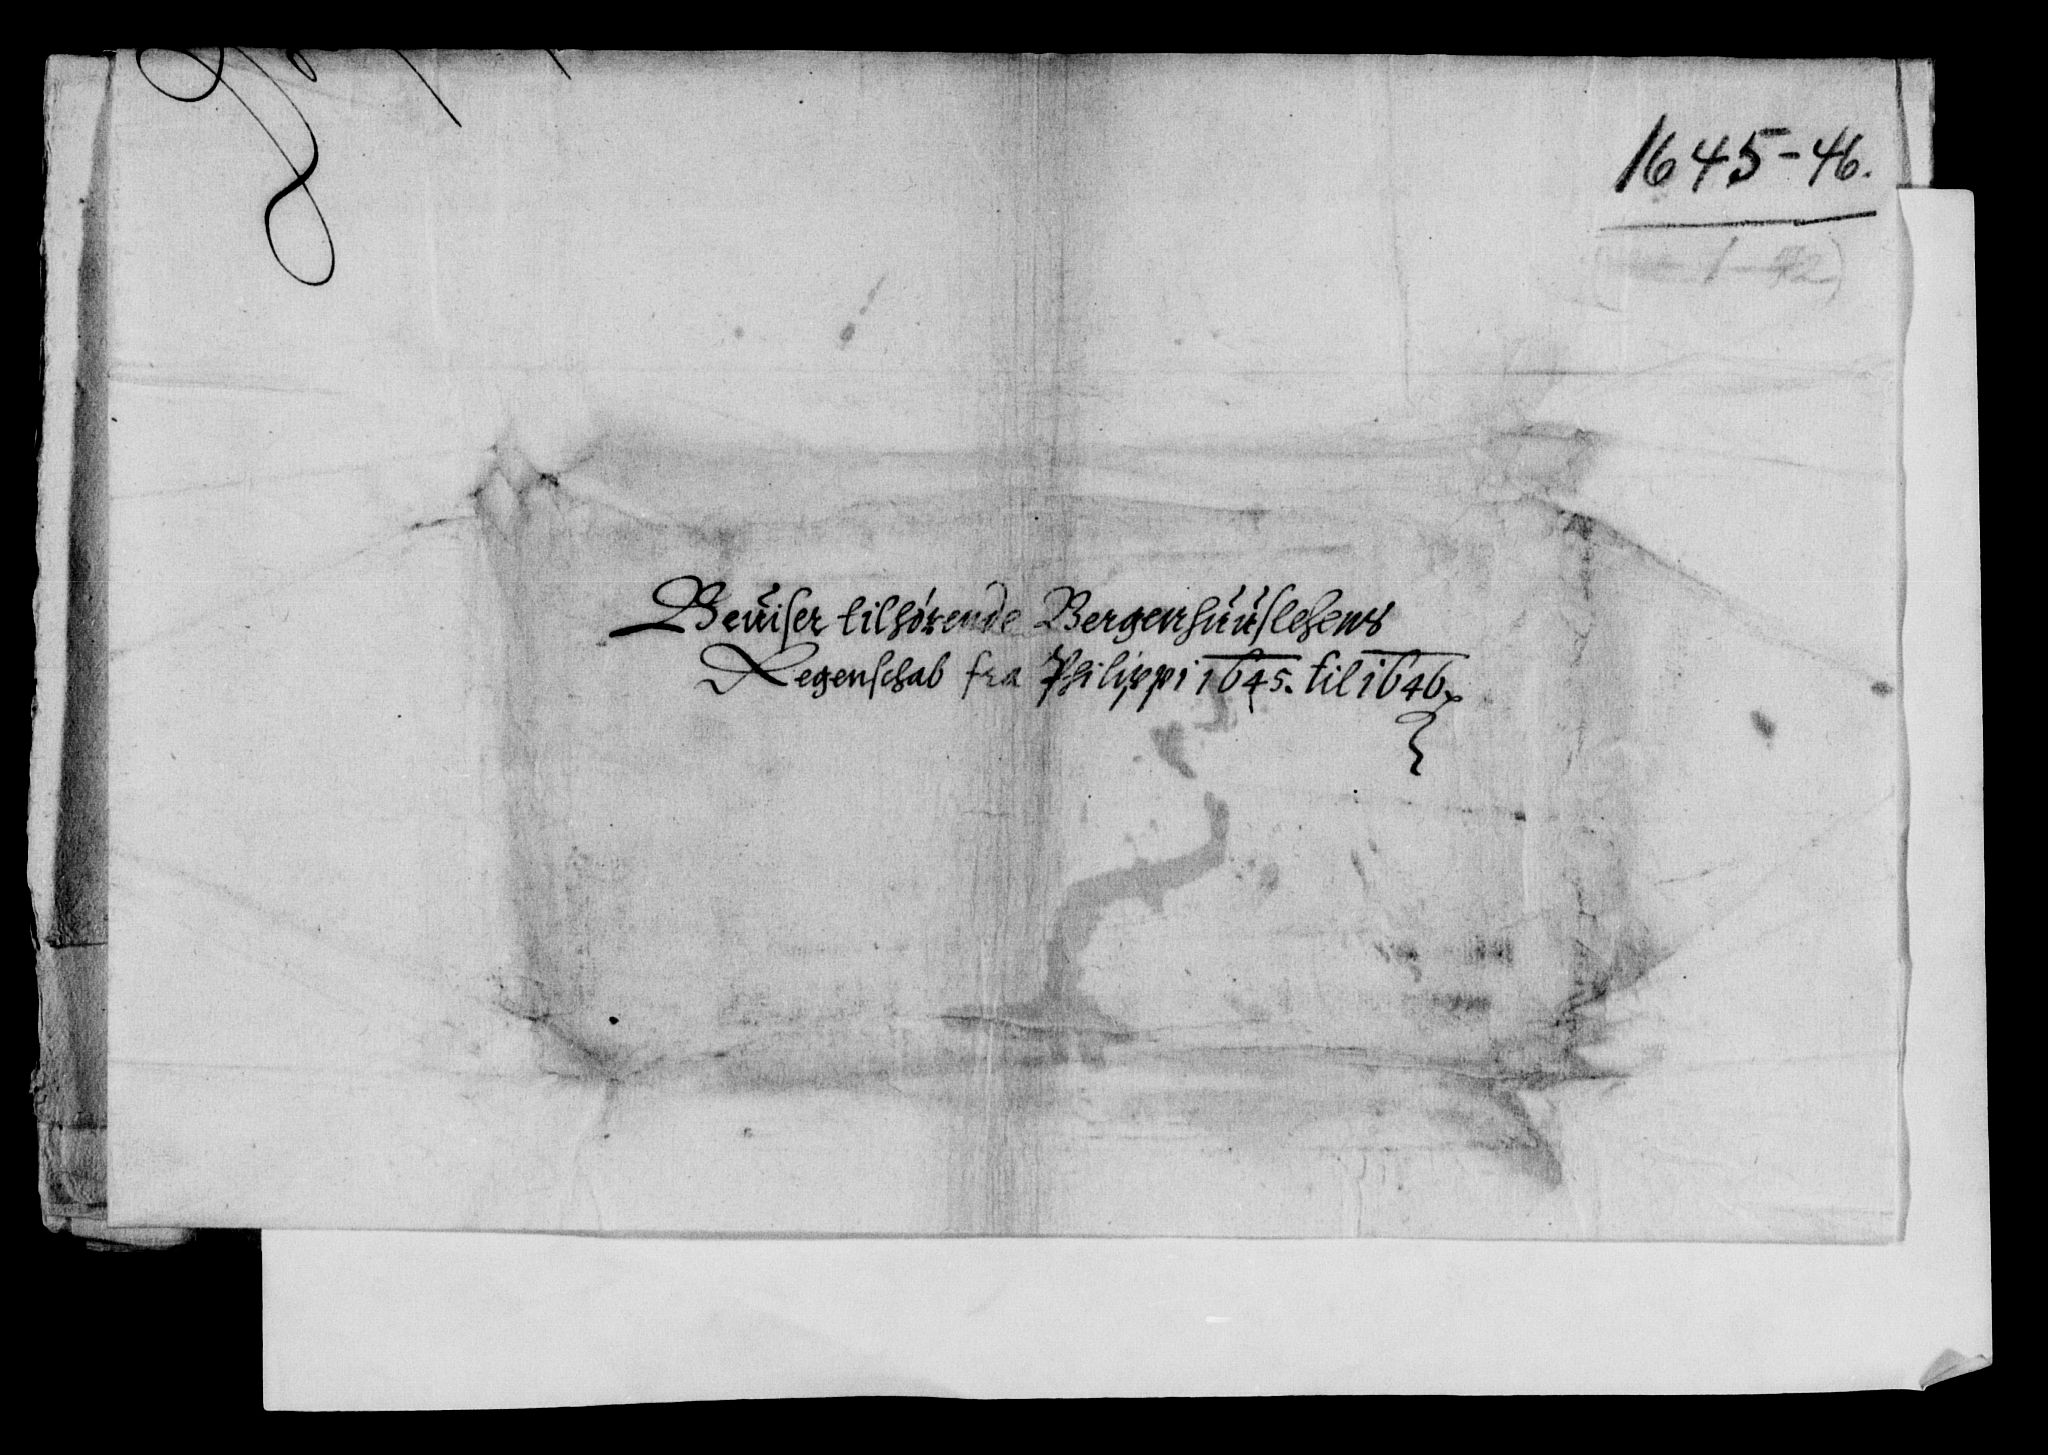 1645-46.
Beuiser tilhørende Bergenhuuslehens
Regenschab fra Philippi 1645. til 1646.